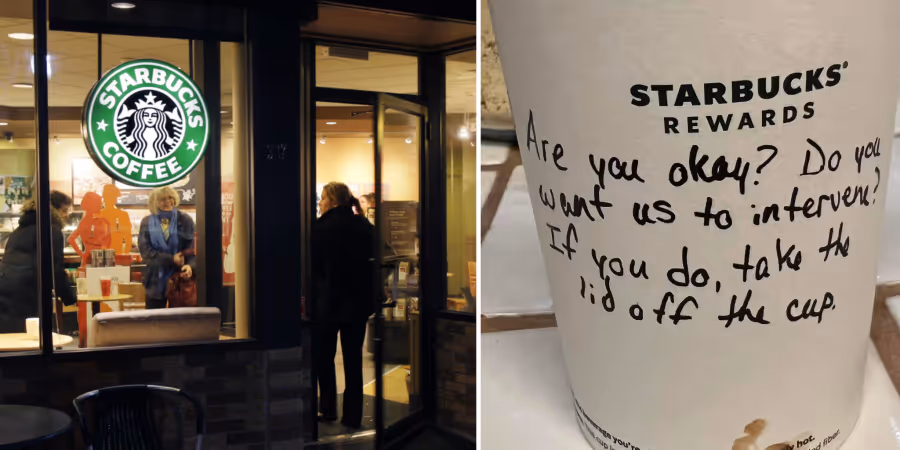 STARBUCKS
COFFEE
STARBUCKS®
REWARDS
Are you okay? Do you
want us to intervene?
If you do, take the
lid off the cup.